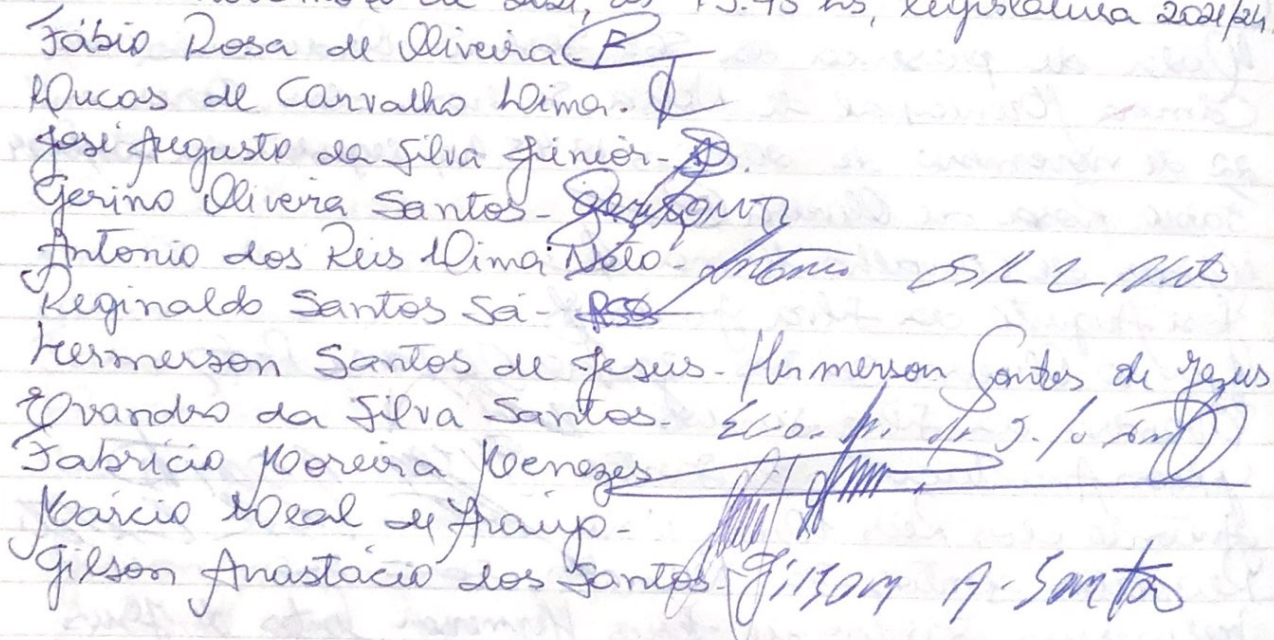 novembro de 2021, às 15:45 hs, legislatura 2021/24.
Fábio Rosa de Oliveira - F
Lucas de Carvalho Lima.
José Augusto da Silva Júnior -
Gerino Oliveira Santos -
Antonio dos Reis Lima Neto - Antonio D R L Neto
Reginaldo Santos Sá - RSá
Hermerson Santos de Jesus - Hermerson Santos de Jesus
Evandro da Silva Santos -
Fabrício Moreira Menezes
Márcio Leal de Araújo -
Gilson Anastácio dos Santos - Gilson A. Santos